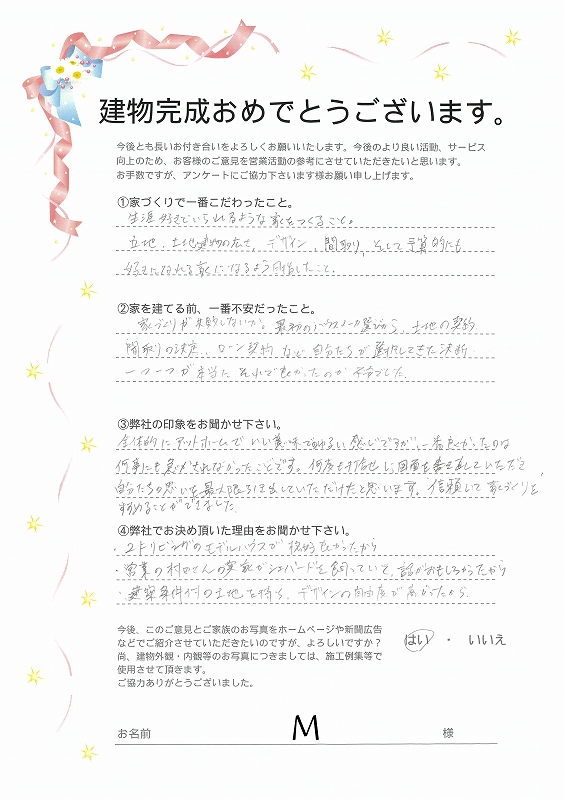 建物完成おめでとうございます。
今後とも長いお付き合いをよろしくお願いいたします。今後のより良い活動、サービス
向上のため、お客様のご意見を営業活動の参考にさせていただきたいと思います。
お手数ですが、アンケートにご協力下さいます様お願い申し上げます。
①家づくりで一番こだわったこと。
生涯好きでいられるような家をつくること。
立地、土地建物の広さ、デザイン、間取り、そして予算的にも
好きになれる家になるよう目指したこと。
②家を建てる前、一番不安だったこと。
家づくりが失敗しないか。最初のハウスメーカー選びから、土地の契約
間取りの決定、ローン契約など自分たちが選択してきた決断
一つ一つが本当にそれで良かったのか不安でした。
③弊社の印象をお聞かせ下さい。
全体的にアットホームでいい意味でゆるい感じですが、一番良かったのは
何事にも急かされなかったことです。何度も打合せし、図面を書き直していただき、
自分たちの思いを最大限引き出していただけたと思います。信頼して家づくりを
すすめることができました。
④弊社でお決め頂いた理由をお聞かせ下さい。
・2Fリビングのモデルハウスが役的良かったから
・営業の村田さんの実家がシェパードを飼っていて、話がおもしろかったから
・建築条件付の土地を持ち、デザインの自由度が高かったから。
今後、このご意見とご家族のお写真をホームページや新聞広告
などでご紹介させていただきたいのですが、よろしいですか？ はい ・ いいえ
尚、建物外観・内観等のお写真につきましては、施工例集等で
使用させて頂きます。
ご協力ありがとうございました。
お名前 M 様